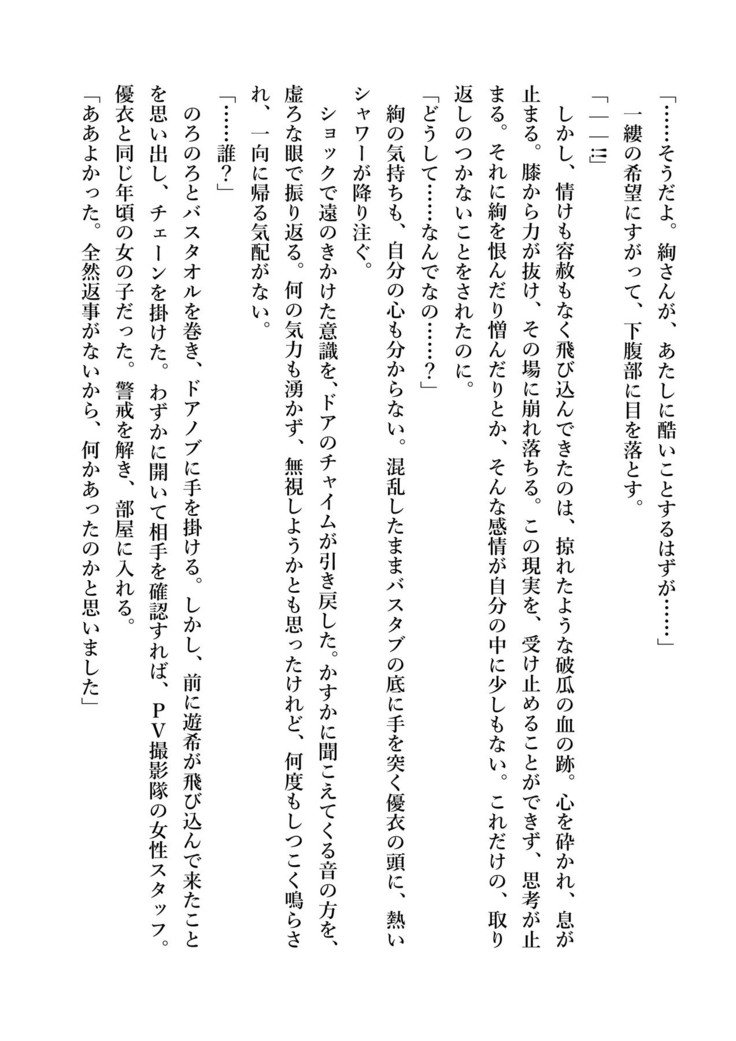 「……そうだよ。絢さんが、あたしに酷いことするはずが……」
　一縷の希望にすがって、下腹部に目を落とす。
「――!!!」
　しかし、情けも容赦もなく飛び込んできたのは、掠れたような破瓜の血の跡。心を砕かれ、息が
止まる。膝から力が抜け、その場に崩れ落ちる。この現実を、受け止めることができず、思考が止
まる。それに絢を恨んだり憎んだりとか、そんな感情が自分の中に少しもない。これだけの、取り
返しのつかないことをされたのに。
「どうして……なんでなの……？」
　絢の気持ちも、自分の心も分からない。混乱したままバスタブの底に手を突く優衣の頭に、熱い
シャワーが降り注ぐ。
　ショックで遠のきかけた意識を、ドアのチャイムが引き戻した。かすかに聞こえてくる音の方を、
虚ろな眼で振り返る。何の気力も湧かず、無視しようかとも思ったけれど、何度もしつこく鳴らさ
れ、一向に帰る気配がない。
「……誰？」
　のろのろとバスタオルを巻き、ドアノブに手を掛ける。しかし、前に遊希が飛び込んで来たこと
を思い出し、チェーンを掛けた。わずかに開いて相手を確認すれば、ＰＶ撮影隊の女性スタッフ。
優衣と同じ年頃の女の子だった。警戒を解き、部屋に入れる。
「ああよかった。全然返事がないから、何かあったのかと思いました」